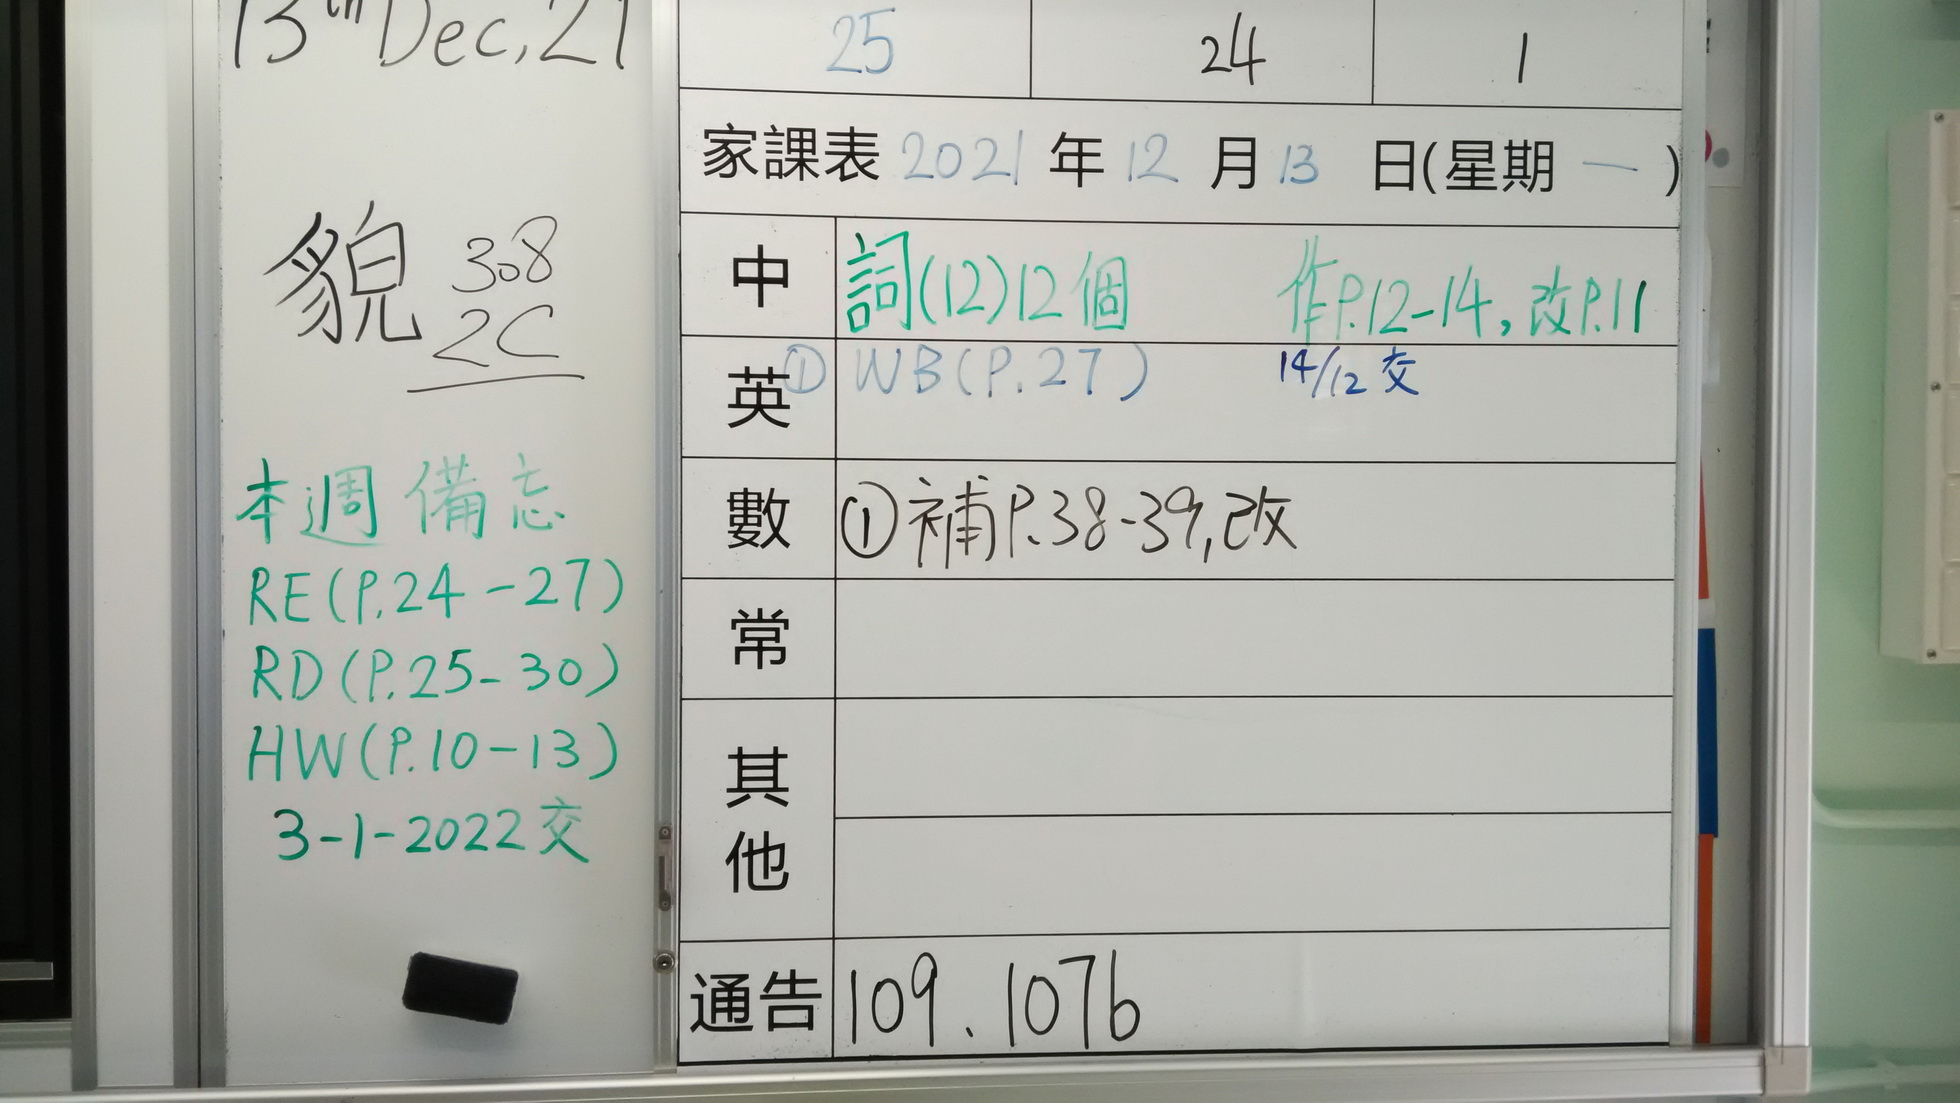 13th Dec, 21
貌 308
2C
本週備忘
RE (P.24-27)
RD (P.25-30)
HW (P.10-13)
3-1-2022交
25 24 1
家課表 2021 年 12 月 13 日(星期 一 )
中 詞(12)12個 作P.12-14, 改P.11
英 ① WB(P.27) 14/12 交
數 ①補P.38-39,改
常
其他
通告 109. 107b